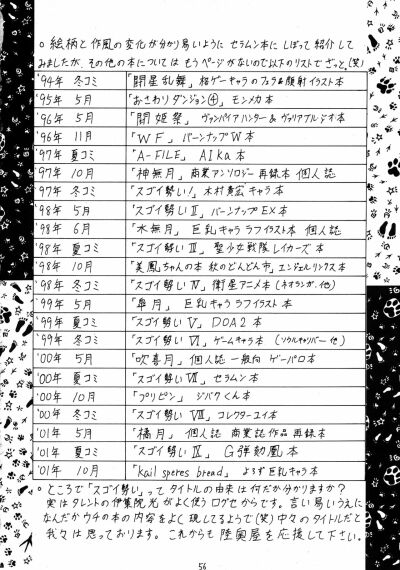 ○ 絵柄と作風の変化が分かり易いように セラムン本に しぼって紹介して
みましたが、その他の本については もうページがないので以下のリストでざっと。(笑)
'94年 冬コミ 「開星乱舞」 格ゲーキャラのフェラ&顔射イラスト本
'95年 5月 「おさわりダンジョン④」 モンメカ本
'96年 5月 「開姫祭」 ヴァンパイアハンター&ヴァリアブルジオ本
'96年 11月 「WF」 バーンナップW本
'97年 夏コミ 「A-FILE」 AIKa本
'97年 10月 「神無月」 商業アンソロジー再録本 個人誌
'97年 冬コミ 「スゴイ勢い!」 木村貴宏キャラ本
'98年 5月 「スゴイ勢いⅡ」 バーンナップEX本
'98年 6月 「水無月」 巨乳キャラ ラフイラスト本 個人誌
'98年 夏コミ 「スゴイ勢いⅢ」 聖少女戦隊レイカーズ本
'98年 10月 「美鳳ちゃんの本 秋のどんどん市」 エンジェルリンクス本
'98年 冬コミ 「スゴイ勢いⅣ」 衛星アニメ本 (ネオランガ、他)
'99年 5月 「皐月」 巨乳キャラ ラフイラスト本
'99年 夏コミ 「スゴイ勢いⅤ」 DOA2本
'99年 冬コミ 「スゴイ勢いⅥ」 ゲームキャラ本 (ソウルキャリバー他)
'00年 5月 「吹喜月」 個人誌 一般向 ゲーパロ本
'00年 夏コミ 「スゴイ勢いⅦ」 セラムン本
'00年 10月 「プリピン」 ジバクくん本
'00年 冬コミ 「スゴイ勢いⅧ」 コレクターユイ本
'01年 5月 「橘月」 個人誌 商業誌作品 再録本
'01年 夏コミ 「スゴイ勢いⅨ」 G弾動凰本
'01年 10月 「Kail speres bread」 よろず巨乳キャラ本
○ ところで「スゴイ勢い」ってタイトルの由来は何だか分かりますか?
実はタレントの伊集院光がよく使うログセからです。言い易いうえに
なんだかウチの本の内容をよく現してるようで(笑)中々のタイトルだと
我々は思っております。これからも 陸奥屋を応援して下さい。
56